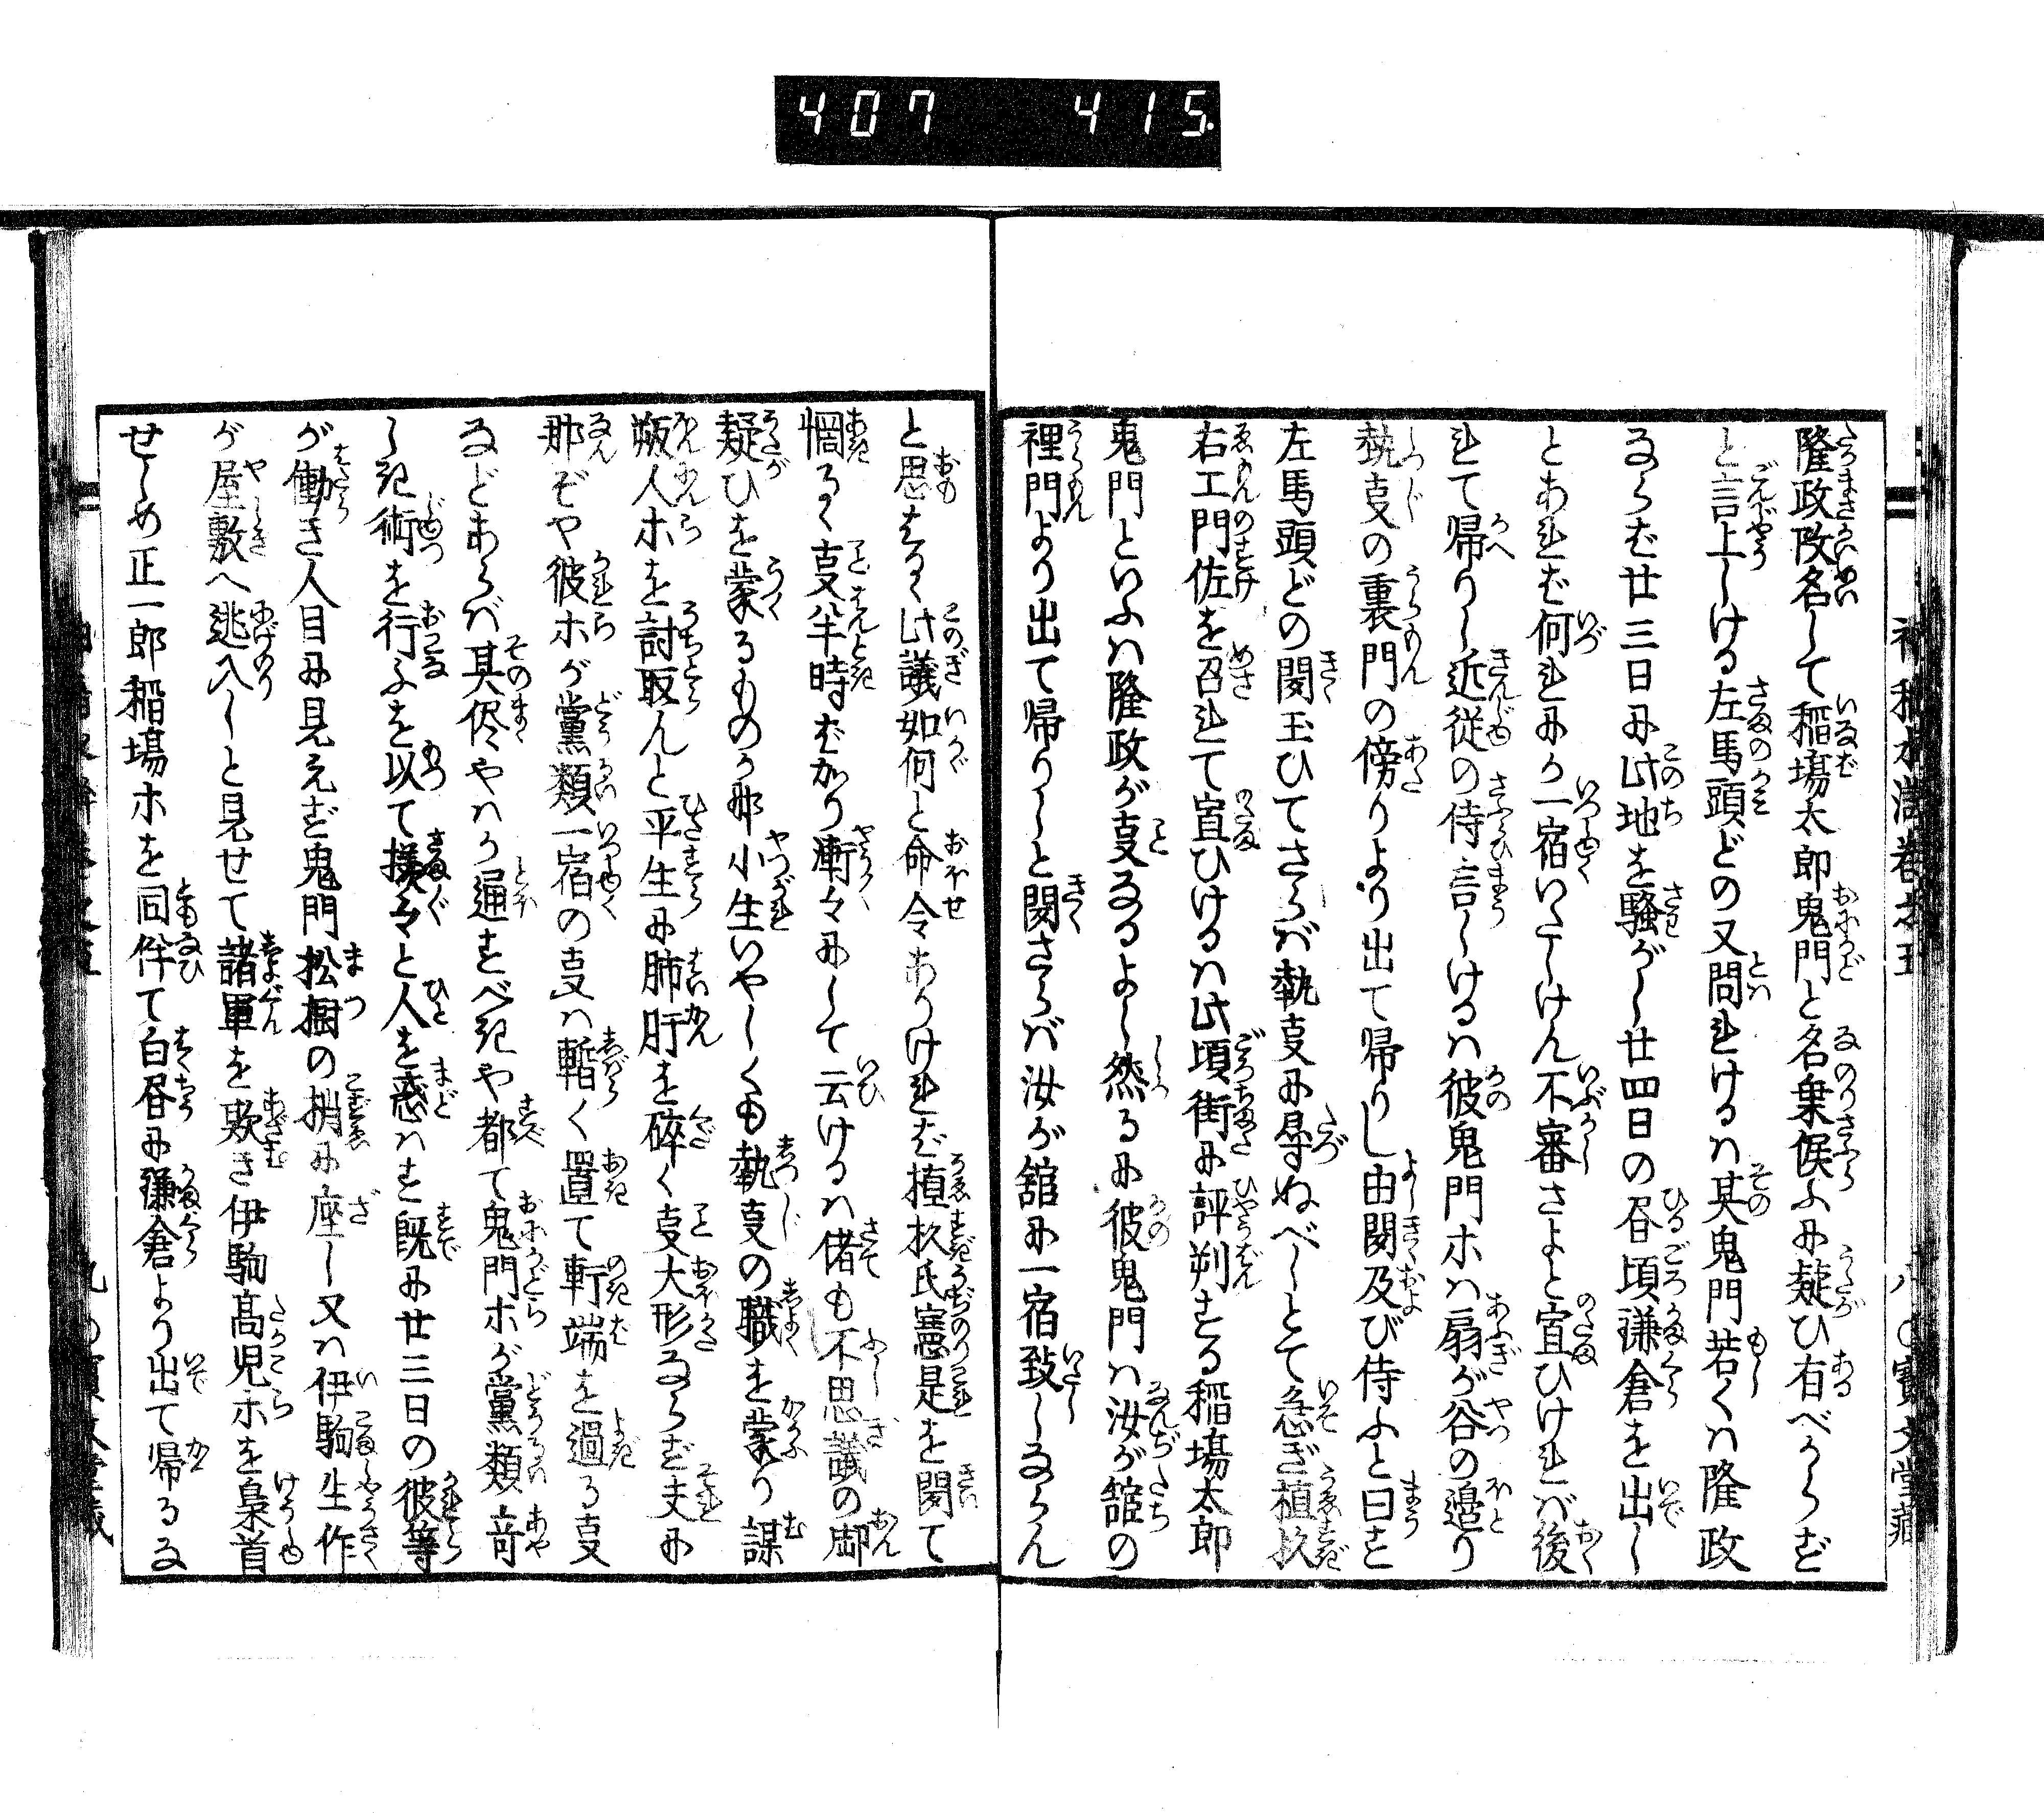 407 415
隆政改名して稲場太郎鬼門と名乗候ふに疑ひ有べからず
と言上しける左馬頭どの又問れけるハ其鬼門若くハ隆政
ならむ廿三日に此地を騒がし廿四日の昼頃鎌倉を出し
とあれば何れにか一宿いたしけん不審さよと宣ひけれバ後
れて帰りし近従の侍言しけるハ彼鬼門ホハ扇が谷の邉り
執亊の裏門の傍りより出て帰りし由聞及び侍ふと曰す
左馬頭どの聞玉ひてさらバ執亊に尋ぬべしとて急ぎ植杦
右エ門佐を召れて宣ひけるハ此頃街に評判する稲場太郎
鬼門といふハ隆政が亊なるよし然るに彼鬼門ハ汝が舘の
裡門より出て帰りしと聞さらバ汝が舘に一宿致しならん
と思はるゝ此議如何と命令ありけれバ植杦氏憲是を聞て
惘るゝ亊半時ばかり漸々にして云けるハ偖も不思議の御
疑ひを蒙るものか那小生いやしくも執亊の職を蒙り謀
叛人ホを討取んと平生に肺肝を碎く亊大形ならず夫に
那ぞや彼ホが黨類一宿の亊ハ暫く置て軒端を過る亊
などあらバ其侭やハか通すべきや都て鬼門ホが黨類竒
しき術を行ふを以て様々と人を惑ハす既に廿三日の彼等
が働き人目に見えず鬼門松樹の梢に座し又ハ伊駒生作
が屋敷へ迯入しと見せて諸軍を欺き伊駒高児ホを梟首
せしめ正一郎稲場ホを同伴て白昼に鎌倉より出て帰るな